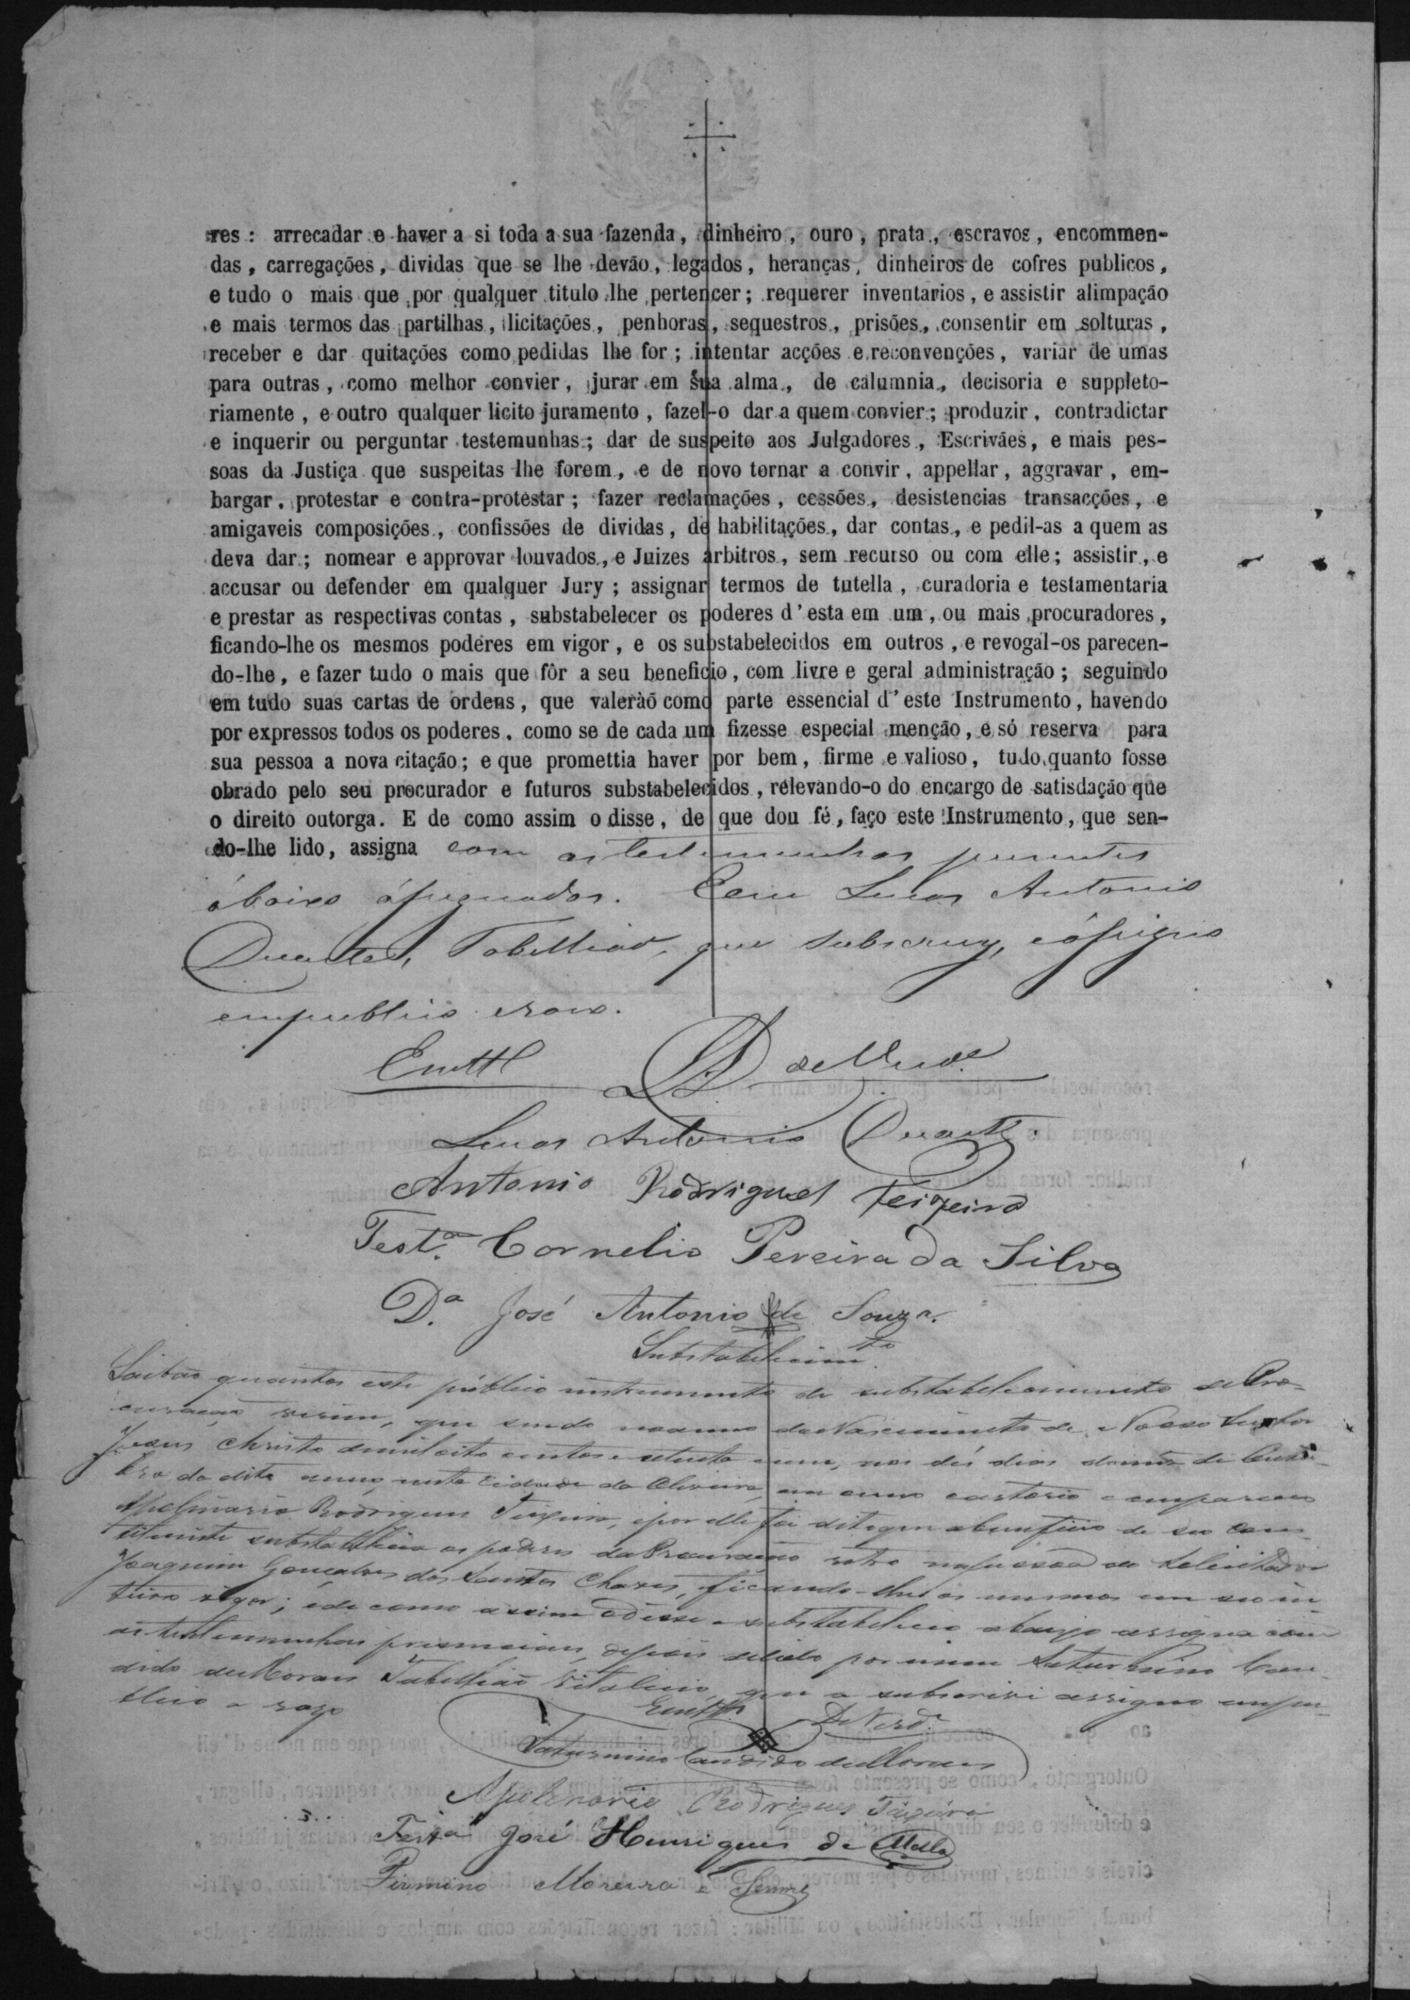 res: arrecadar e haver a si toda a sua fazenda, dinheiro, ouro, prata, escravos, encommen-
das, carregações, dividas que se lhe devão, legados, heranças, dinheiros de cofres publicos,
e tudo o mais que por qualquer titulo lhe pertencer; requerer inventarios, e assistir alimpação
e mais termos das partilhas, licitações, penhoras, sequestros, prisões, consentir em solturas,
receber e dar quitações como pedidas lhe for; intentar acções e reconvenções, variar de umas
para outras, como melhor convier, jurar em sua alma, de calumnia, decisoria e suppleto-
riamente, e outro qualquer licito juramento, fazel-o dar a quem convier; produzir, contradictar
e inquerir ou perguntar testemunhas; dar de suspeito aos Julgadores, Escrivães, e mais pes-
soas da Justiça que suspeitas lhe forem, e de novo tornar a convir, appellar, aggravar, em-
bargar, protestar e contra-protestar; fazer reclamações, cessões, desistencias transacções, e
amigaveis composições, confissões de dividas, de habilitações, dar contas, e pedil-as a quem as
deva dar; nomear e approvar louvados, e Juizes arbitros, sem recurso ou com elle; assistir, e
accusar ou defender em qualquer Jury; assignar termos de tutella, curadoria e testamentaria
e prestar as respectivas contas, substabelecer os poderes d'esta em um, ou mais procuradores,
ficando-lhe os mesmos poderes em vigor, e os substabelecidos em outros, e revogal-os parecen-
do-lhe, e fazer tudo o mais que fôr a seu beneficio, com livre e geral administração; seguindo
em tudo suas cartas de ordens, que valeràõ como parte essencial d'este Instrumento, havendo
por expressos todos os poderes, como se de cada um fizesse especial menção, e só reserva para
sua pessoa a nova citação; e que promettia haver por bem, firme e valioso, tudo quanto fosse
obrado pelo seu procurador e futuros substabelecidos, relevando-o do encargo de satisdação que
o direito outorga. E de como assim o disse, de que dou fé, faço este Instrumento, que sen-
do-lhe lido, assigna com as testemunhas presentes
abaixo assignadas. Eeu Lucas Antonio
Duarte, Tabellião, que subscrevy, e assigno
em publico e raso.
Em tt de Verde
Lucas Antonio Duarte
Antonio Rodrigues Teixeira
Test.ª Cornelio Pereira da Silva
D.ª José Antonio de Souza.
Substabelecim.to
Saibão quantos este publico instrumento de substabelecimento de Pro-
curação virem, que sendo no anno do Nascimento de Nosso Senhor
Jesus Christo de mil oito centos e setenta e um, aos dés dias do mes de
do dito anno, nesta Cidade da Oliveira, em meu cartorio compareceu
Apolinario Rodrigues Teixeira, e por elle foi dito que a beneficio de seu Cons-
tituinte substabelecia os poderes da Procuração retro na pessoa do Solicitador
Joaquim Gonçalves dos Santos Chaves, ficando-lhe os mesmos em seu in-
teiro vigor; e de como assim o disse e substabeleceo abaixo assigna com
as testemunhas presenciaes, depois de lido por mim Saturnino Can-
dido de Moraes Tabellião vitalicio que a subscrevi assigno em pu-
blico e raso
Em tt.º De Verd.e
Saturnino Candido de Moraes
Apolinario Rodrigues Teixeira
Testª José Henriques de Mello
Firmino Moreira